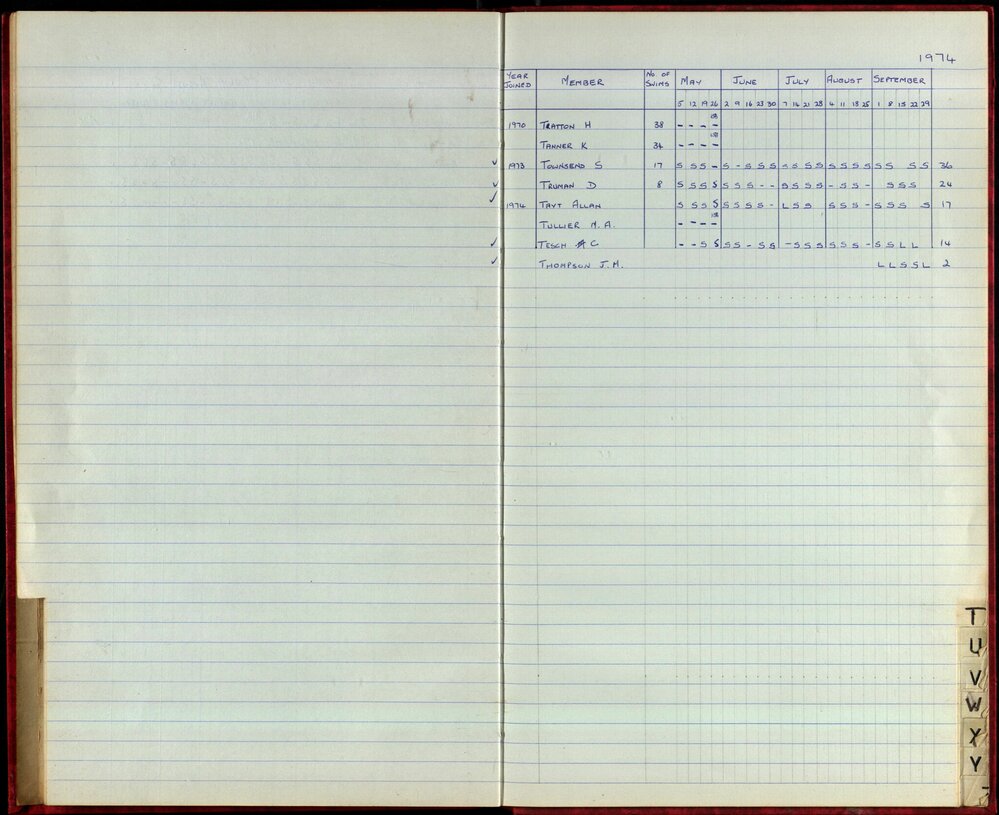 1974
YEAR JOINED MEMBER No. OF SWIMS MAY JUNE JULY AUGUST SEPTEMBER
5 12 19 26 2 9 16 23 30 7 14 21 28 4 11 18 25 1 8 15 22 29
1970 TRATTON H 38 - - - -
TANNER K 34 - - - -
✓ 1973 TOWNSEND S 17 S S S - S - S S S S S S S S S S S S S S S 36
✓ TRUMAN D 8 S S S S S S S - - S S S S - S S - S S S 24
✓ 1974 TAYT ALLAN S S S S S S S S - L S S S S S - S S S S 17
TULLIER M. A. - - - -
✓ TESCH C - - S S S S - S S - S S S S S S - S S L L 14
✓ THOMPSON J. M. L L S S L 2
T
U
V
W
X
Y